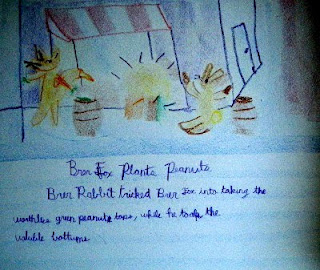 Brer Fox Plants Peanuts
Brer Rabbit tricked Brer Fox into taking the
worthless green peanuts tops, while he took the
valuble bottums